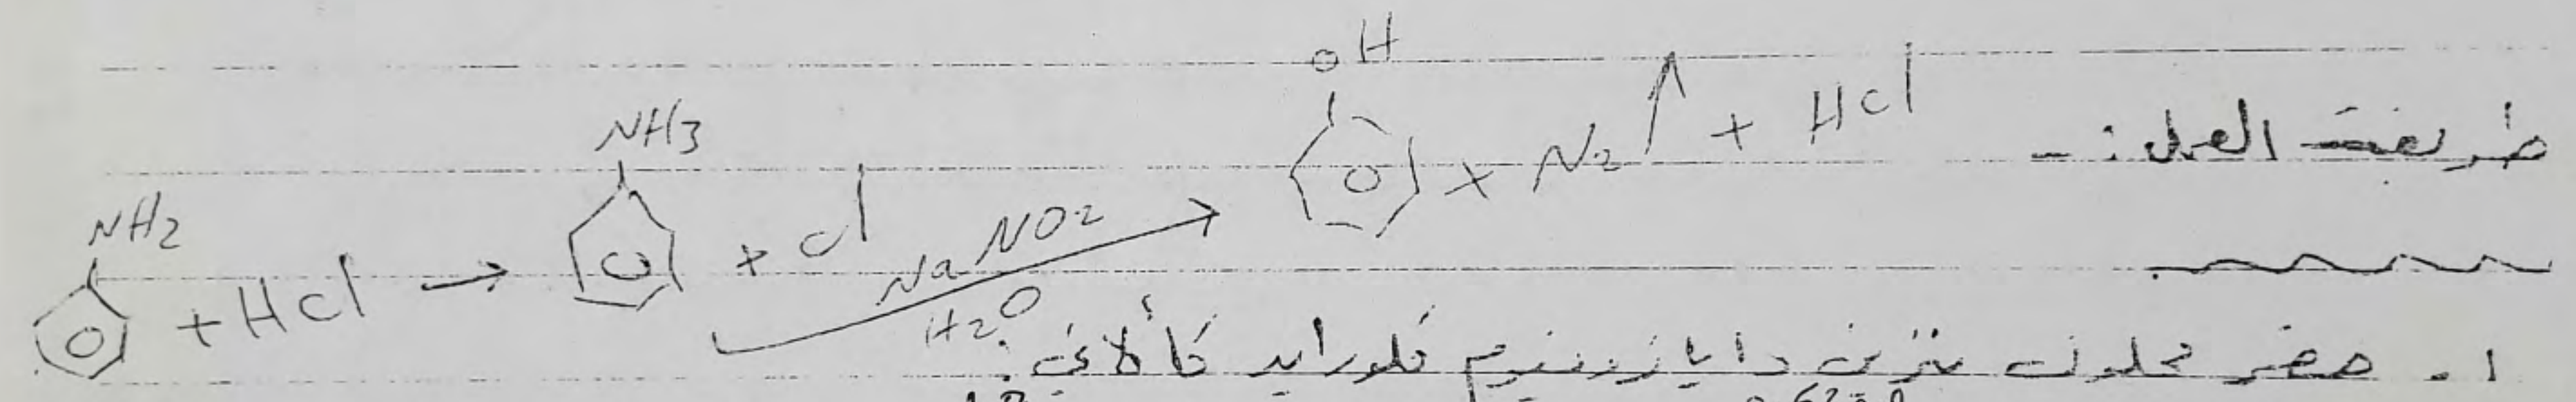 طريقة العمل :-
NH2 + HCl → NH3 + Cl NaNO2 H2O → OH + N2 ↑ + HCl
١. حضر محلول بنزين دايازونيوم كلورايد كالاتي :